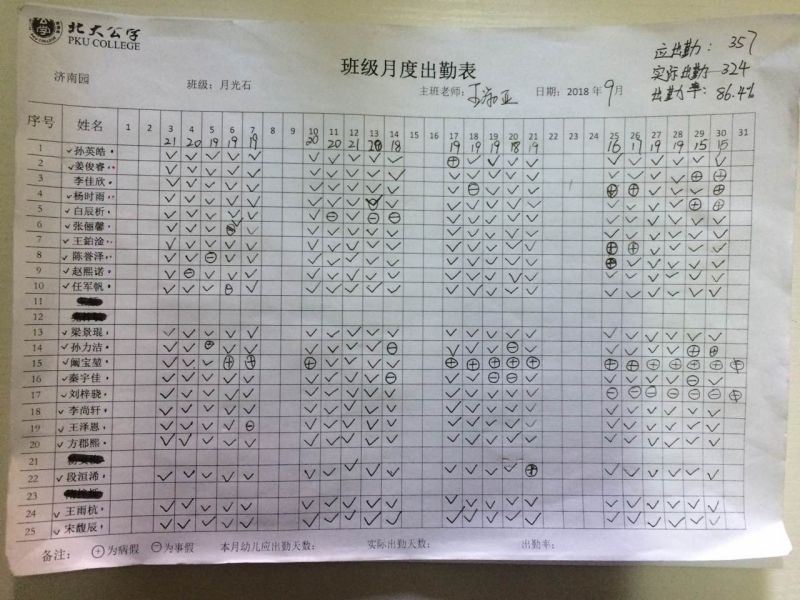 北大公学
PKU COLLEGE
应出勤: 357
班级月度出勤表
实际出勤 324
济南园 班级:月光石 主班老师: 日期:2018年9月
出勤率: 86.4%
序号 姓名 1 2 3 4 5 6 7 8 9 10 11 12 13 14 15 16 17 18 19 20 21 22 23 24 25 26 27 28 29 30 31
21 20 19 19 19 20 20 21 20 18 19 19 19 18 19 16 17 19 19 15 15
1 孙英皓
2 姜俊睿
3 李佳欣
4 杨时雨
5 白辰析
6 张俪馨
7 王铂淦
8 陈誉泽
9 赵熙诺
10 任军帆
11
12
13 梁景琨
14 孙力洁
15 阚宝堃
16 秦宇佳
17 刘梓骁
18 李尚轩
19 王泽恩
20 方郡熙
21
22 段洹浠
23
24 王雨杭
25 宋馥辰
备注: ⊕为病假 ⊖为事假 本月幼儿应出勤天数: 实际出勤天数: 出勤率: